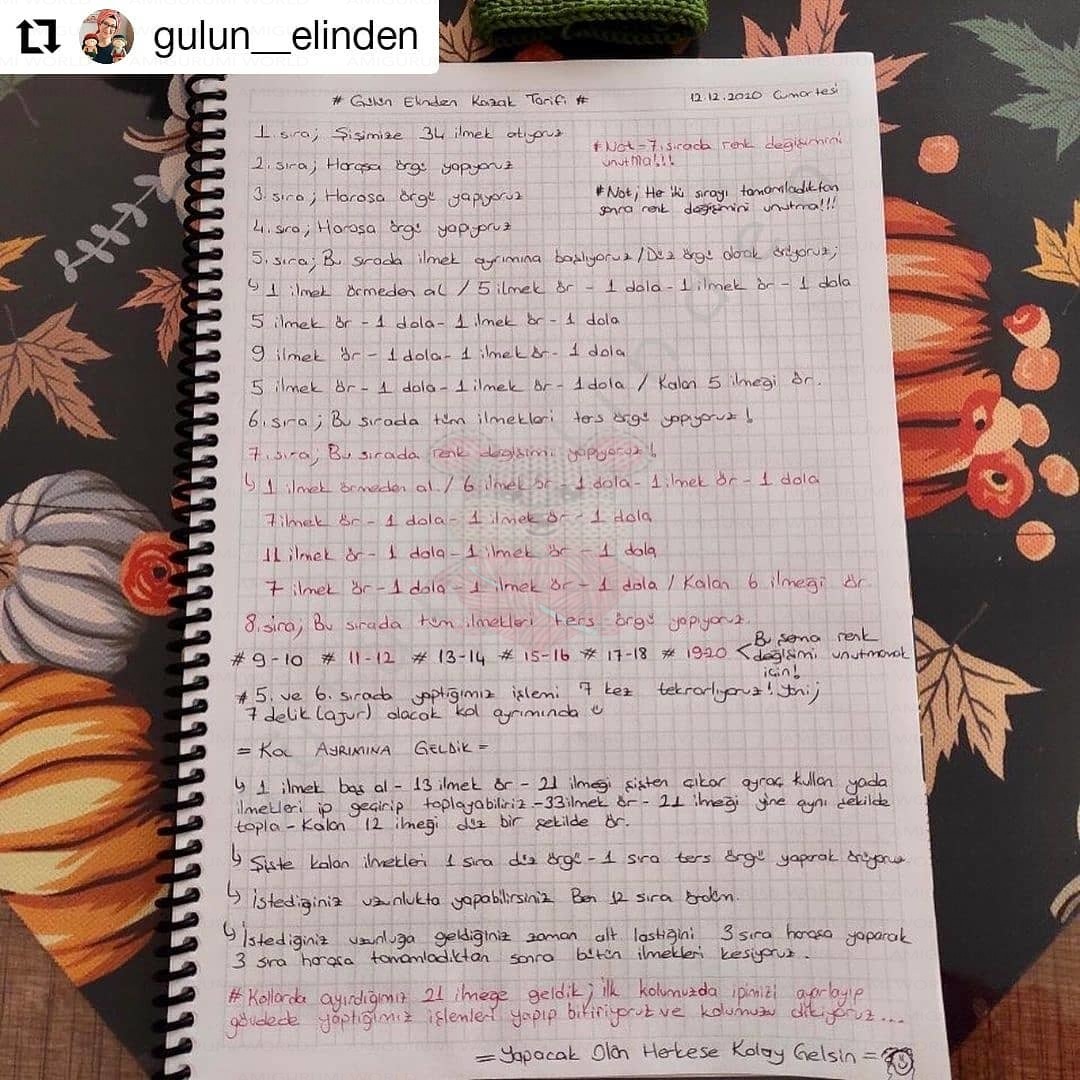 gulun__elinden
# Gülün Elinden Kazak Tarifi #
12.12.2020 Cumartesi
1. sıra; Şişimize 34 ilmek atıyoruz
2. sıra; Haroşa örgü yapıyoruz
3. sıra; Haroşa örgü yapıyoruz
4. sıra; Haroşa örgü yapıyoruz
# Not - 7. sırada renk değişimini
unutma!!!
# Not; Her iki sırayı tamamladıktan
sonra renk değişimini unutma!!!
5. sıra; Bu sırada ilmek ayrımına başlıyoruz / Düz örgü olarak örüyoruz;
↳ 1 ilmek örmeden al / 5 ilmek ör - 1 dola - 1 ilmek ör - 1 dola
5 ilmek ör - 1 dola - 1 ilmek ör - 1 dola
9 ilmek ör - 1 dola - 1 ilmek ör - 1 dola
5 ilmek ör - 1 dola - 1 ilmek ör - 1 dola / Kalan 5 ilmeği ör.
6. sıra; Bu sırada tüm ilmekleri ters örgü yapıyoruz!
7. sıra; Bu sırada renk değişimi yapıyoruz!
↳ 1 ilmek örmeden al / 6 ilmek ör - 1 dola - 1 ilmek ör - 1 dola
7 ilmek ör - 1 dola - 1 ilmek ör - 1 dola
11 ilmek ör - 1 dola - 1 ilmek ör - 1 dola
7 ilmek ör - 1 dola - 1 ilmek ör - 1 dola / Kalan 6 ilmeği ör
8. sıra; Bu sırada tüm ilmekleri ters örgü yapıyoruz.
# 9-10 # 11-12 # 13-14 # 15-16 # 17-18 # 19-20 < Bu şema renk
değişimi unutmamak
için!
# 5. ve 6. sırada yaptığımız işlemi 7 kez tekrarlıyoruz! Yani;
7 delik (ajur) olacak kol ayrımında
= KOL AYRIMINA GELDİK =
↳ 1 ilmek boş al - 13 ilmek ör - 21 ilmeği şişten çıkar ayraç kullan yada
ilmekleri ip geçirip toplayabiliriz - 33 ilmek ör - 21 ilmeği yine aynı şekilde
topla - Kalan 12 ilmeği düz bir şekilde ör.
↳ Şişte kalan ilmekleri 1 sıra düz örgü - 1 sıra ters örgü yaparak örüyoruz
↳ İstediğiniz uzunlukta yapabilirsiniz Ben 12 sıra ördüm.
↳ İstediğiniz uzunluğa geldiğiniz zaman alt lastiğini 3 sıra haroşa yaparak
3 sıra haroşa tamamladıktan sonra bütün ilmekleri kesiyoruz.
# Kollarda ayırdığımız 21 ilmeğe geldik; ilk kolumuzda ipimizi ayarlayıp
gövdede yaptığımız işlemleri yapıp bitiriyoruz ve kolumuzu dikiyoruz...
= Yapacak Olan Herkese Kolay Gelsin =